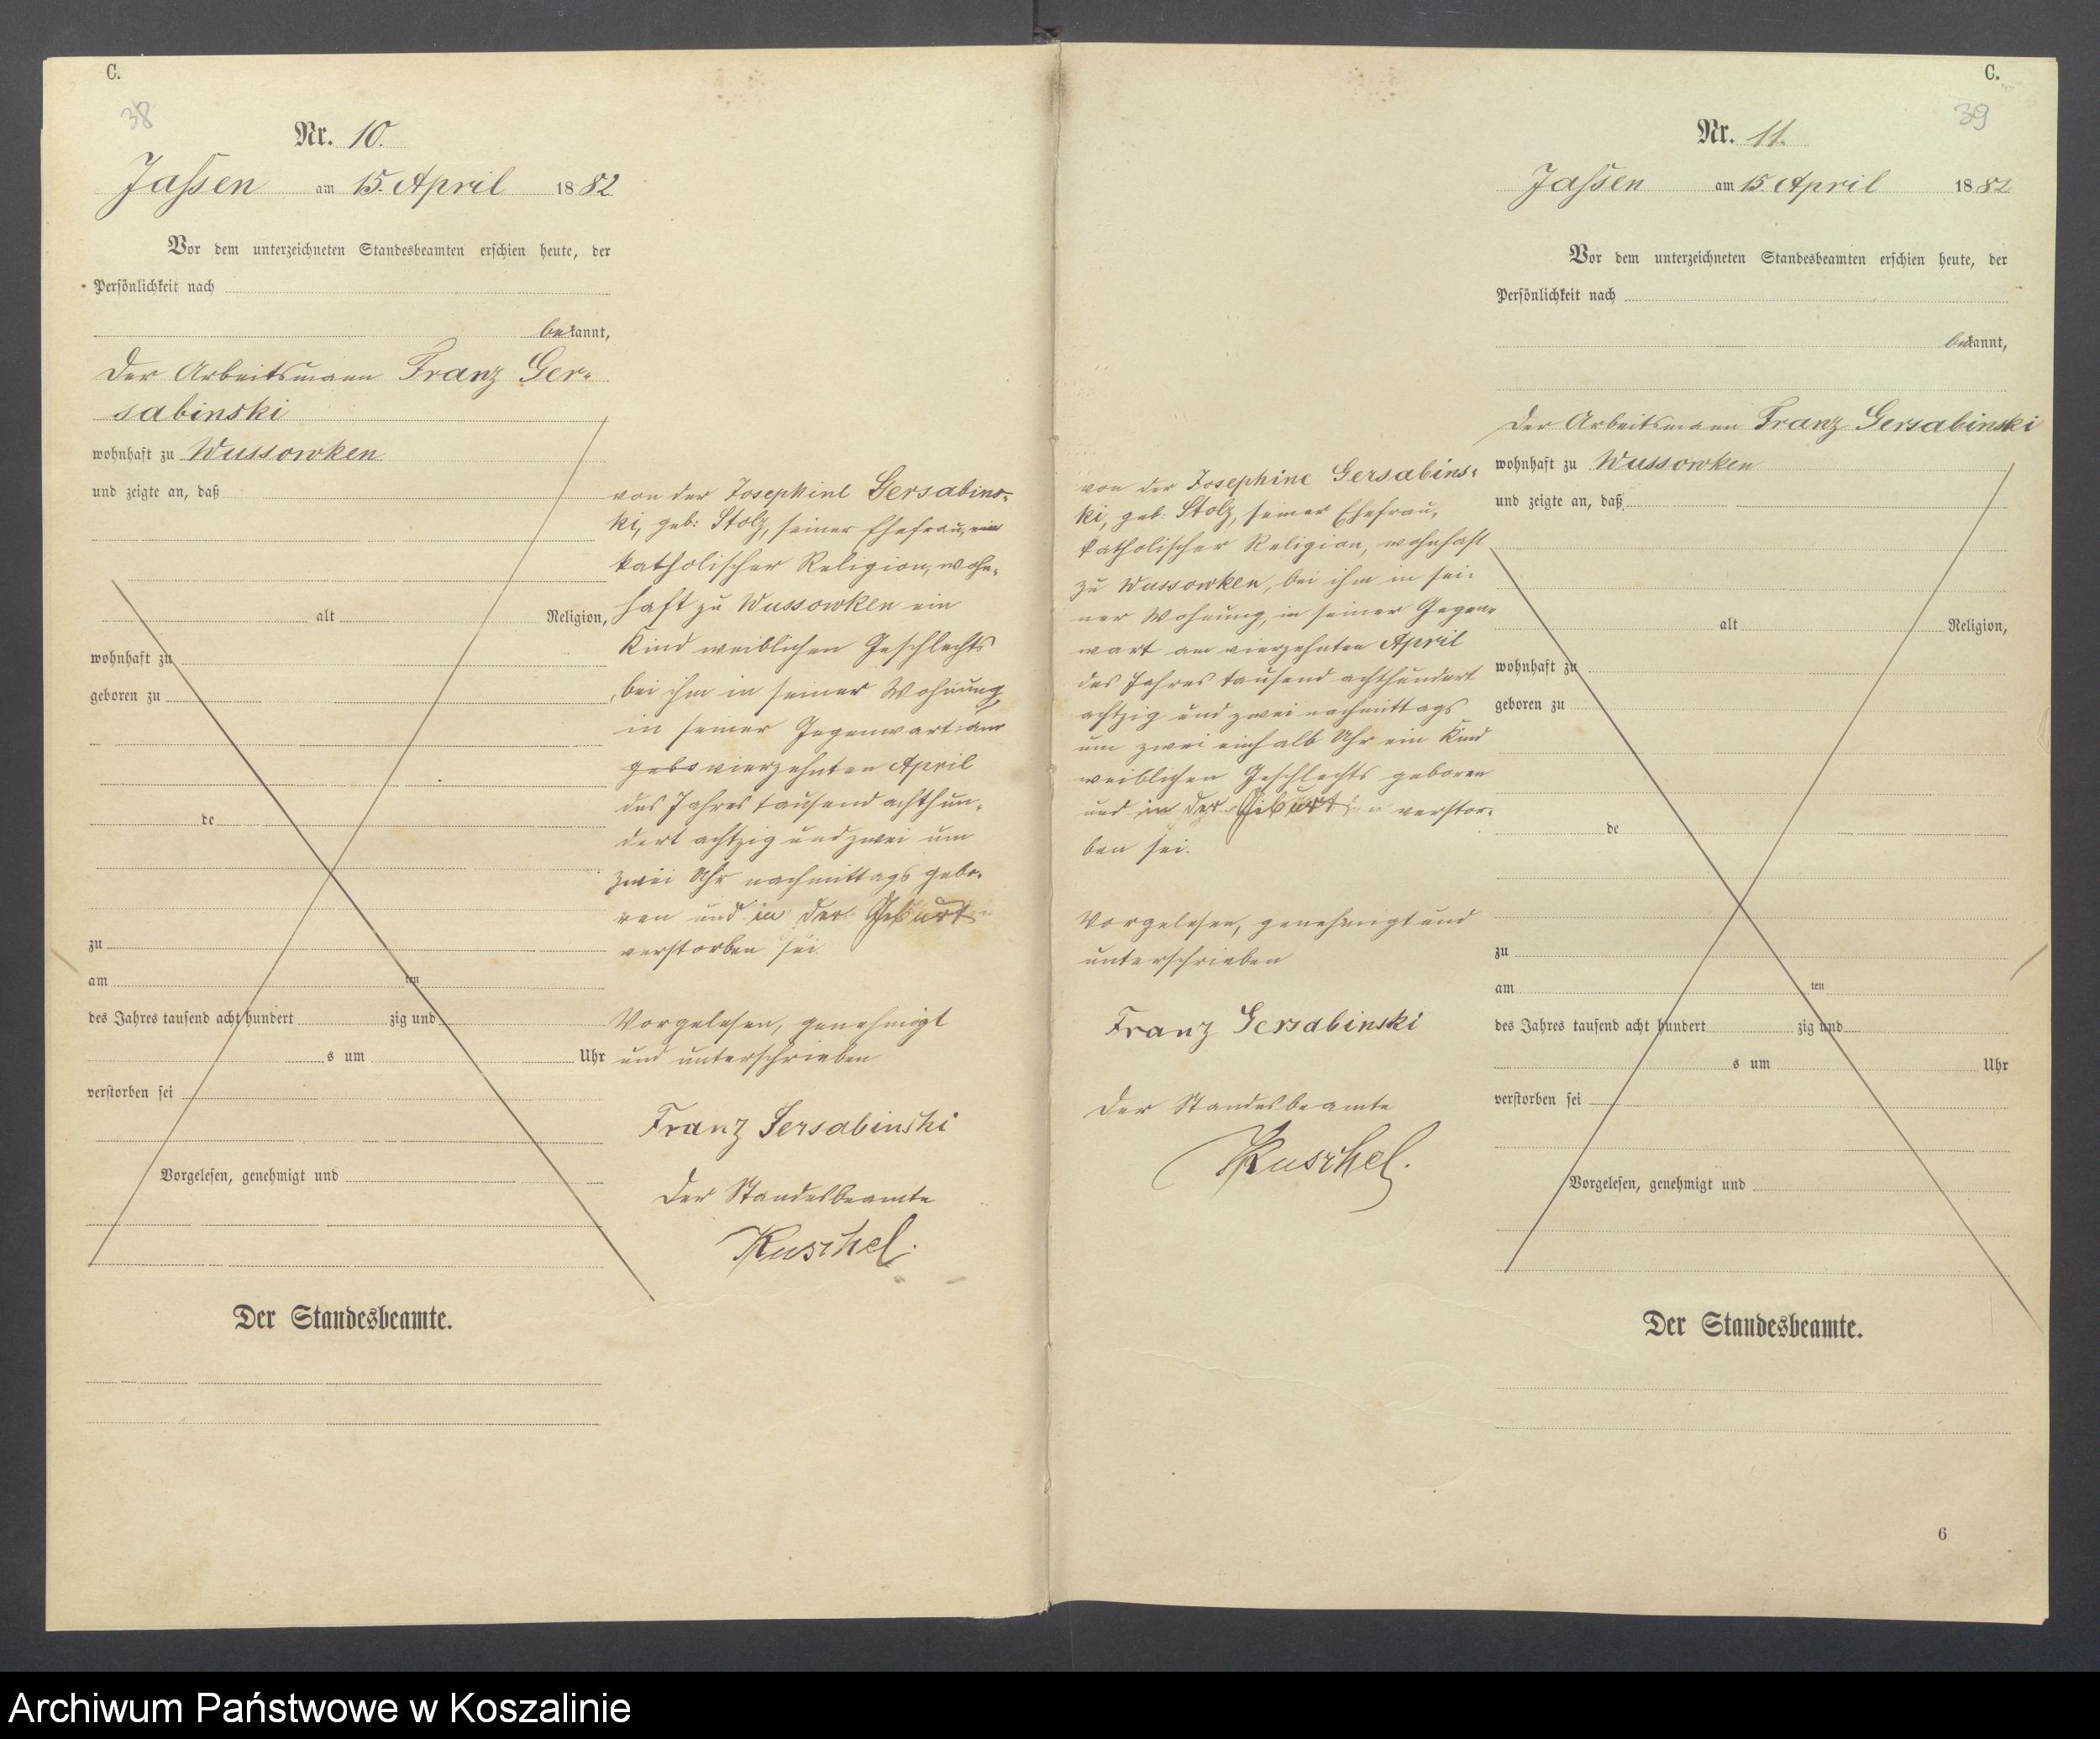 C.
38
Nr. 10.
Jassen am 15. April 1882
Vor dem unterzeichneten Standesbeamten erschien heute, der
Persönlichkeit nach
bekannt,
der Arbeitsmann Franz Ger-
sabinski
wohnhaft zu Wussowken
und zeigte an, daß
alt Religion,
wohnhaft zu
geboren zu
de
zu
am ten
des Jahres tausend acht hundert zig und
s um Uhr
verstorben sei
Vorgelesen, genehmigt und
Der Standesbeamte.
von der Josephine Gersabins-
ki, geb: Stolz, seiner Ehefrau, ein
katholischer Religion, wohn-
haft zu Wussowken ein
Kind weiblichen Geschlechts
bei ihm in seiner Wohnung,
in seiner Gegenwart am
gebo vierzehnten April
des Jahres tausend achthun-
dert achtzig und zwei um
zwei Uhr nachmittags gebo-
ren und in der Geburt
verstorben sei.
Vorgelesen, genehmigt
und unterschrieben
Franz Gersabinski
Der Standesbeamte
Kuschel.
C.
39
Nr. 11.
Jassen am 15. April 1882
Vor dem unterzeichneten Standesbeamten erschien heute, der
Persönlichkeit nach
bekannt,
der Arbeitsmann Franz Gersabinski
wohnhaft zu Wussowken
und zeigte an, daß
alt Religion,
wohnhaft zu
geboren zu
de
zu
am ten
des Jahres tausend acht hundert zig und
s um Uhr
verstorben sei
Vorgelesen, genehmigt und
Der Standesbeamte.
von der Josephine Gersabins-
ki, geb: Stolz, seiner Ehefrau,
katholischer Religion, wohnhaft
zu Wussowken, bei ihm in sei-
ner Wohnung, in seiner Gegen-
wart am vierzehnten April
des Jahres tausend achthundert
achtzig und zwei nachmittags
um zwei einhalb Uhr ein Kind
weiblichen Geschlechts geboren
und in der Geburt verstor-
ben sei.
Vorgelesen, genehmigt und
unterschrieben
Franz Gersabinski
Der Standesbeamte
Kuschel.
6
Archiwum Państwowe w Koszalinie